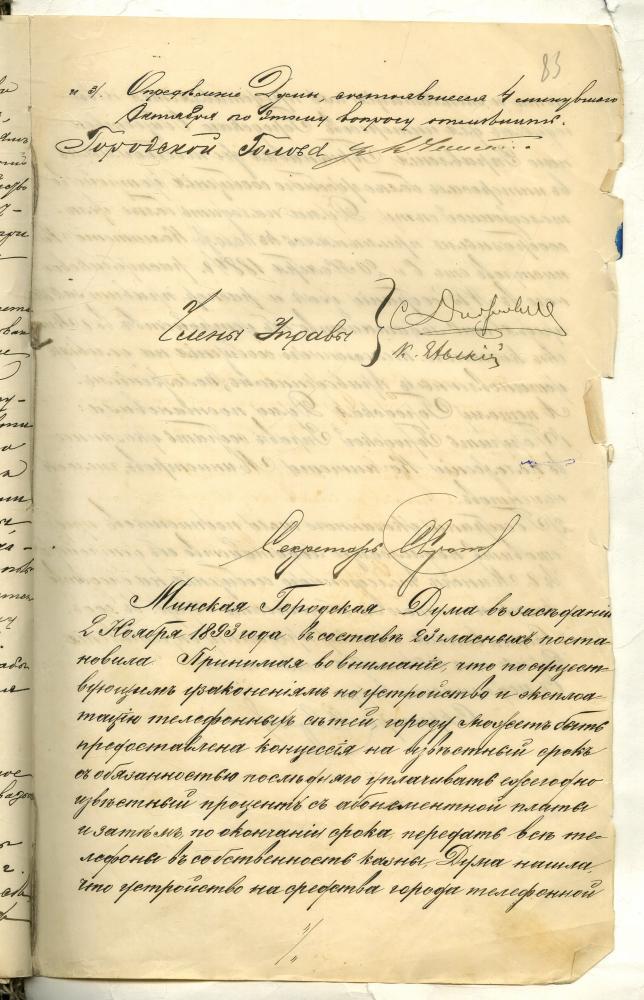 83
и 3/. Опредѣленіе Думы, состоявшееся 4 минувшаго
Октября по этому вопросу отмѣнить.
Городской Голова
Члены Управы
Секретарь
Минская Городская Дума въ засѣданіи
2 Ноября 1893 года въ составѣ 23 гласныхъ поста
новила Принимая во вниманіе, что по сущест-
вующимъ узаконеніямъ на устройство и эксплоа-
тацію телефонныхъ сѣтей, городу можетъ быть
предоставлена концессія на извѣстный срокъ
съ обязанностью послѣдняго уплачивать ежегодно
извѣстный процентъ съ абонементной платы
и затѣмъ, по окончаніи срока, передать всѣ те-
лефоны въ собственность казны, Дума нашла,
что устройство на средства города телефонной